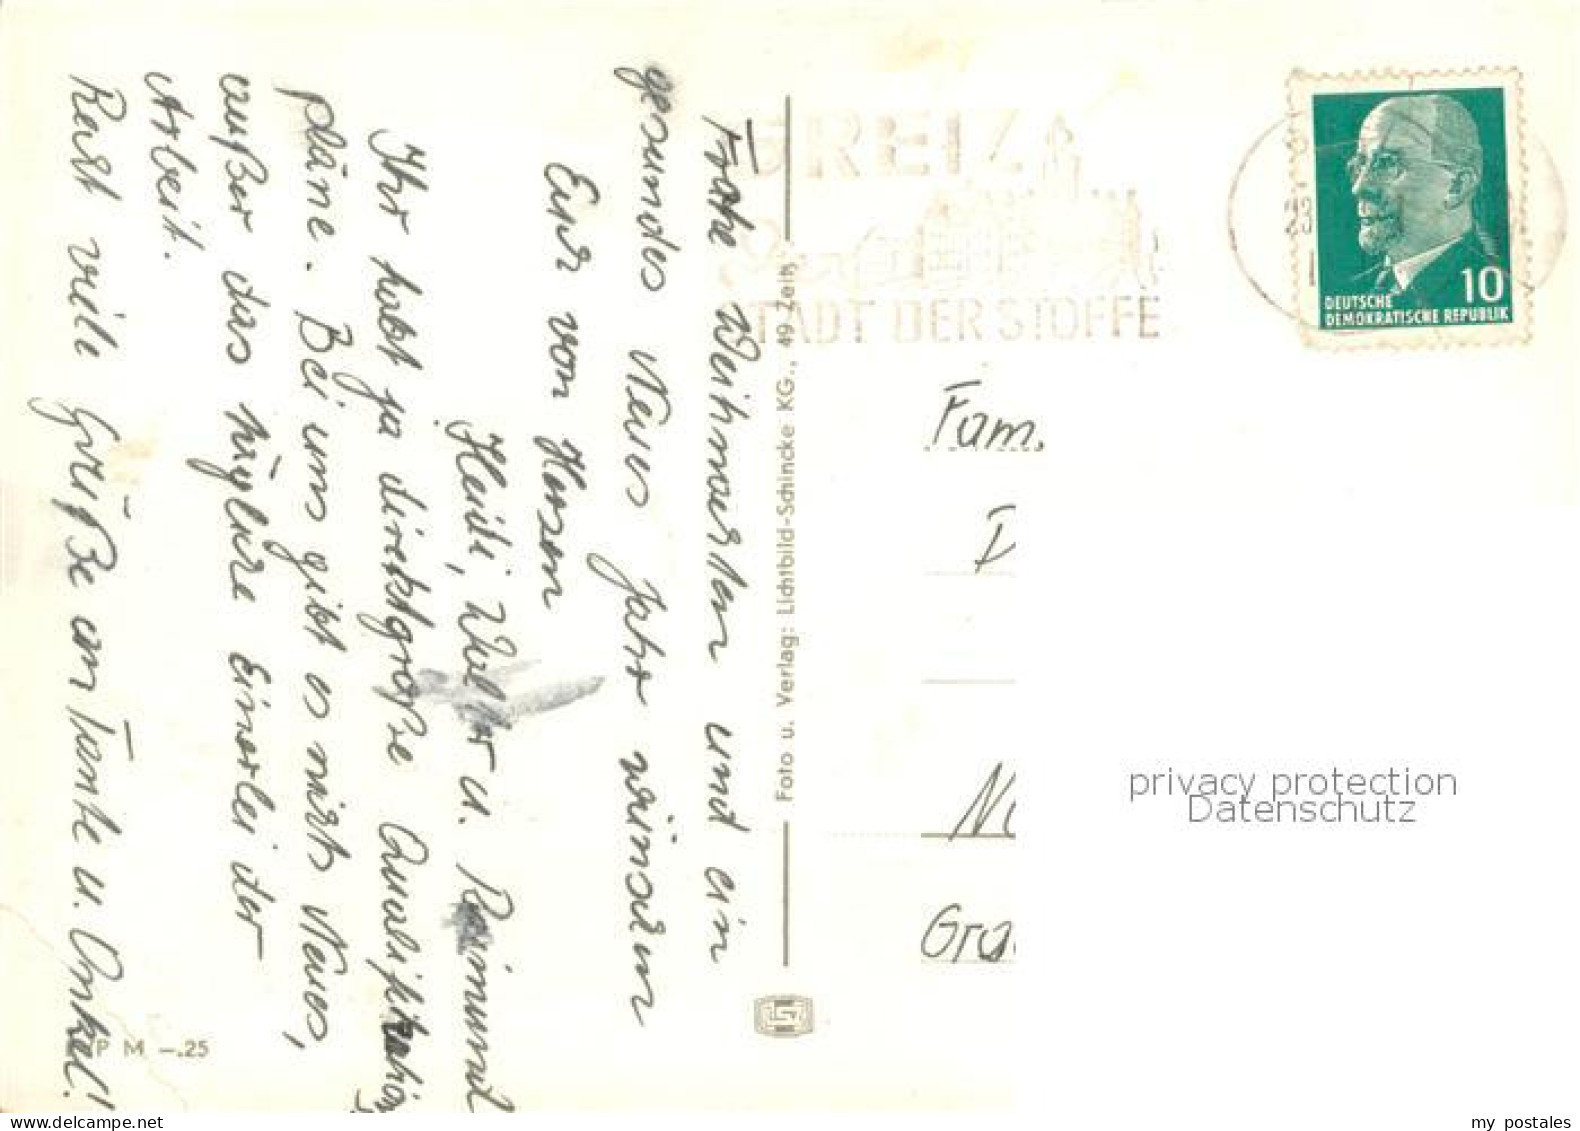 Frohe Weihnachten und ein
gesundes Neues Jahr wünschen
Euch von Herzen
Heidi, Walter u. Raimund
Ihr habt ja direkt große Qualifikations
pläne. Bei uns gibt es nichts Neues,
außer das tägliche Einerlei der
Arbeit.
Recht viele Grüße an Tante u. Onkel!
EVP M -.25
Foto u. Verlag: Lichtbild-Schincke KG., 49 Zeitz
GREIZ
STADT DER STOFFE
23
10
DEUTSCHE
DEMOKRATISCHE REPUBLIK
Fam.
privacy protection
Datenschutz
www.delcampe.net
my postales